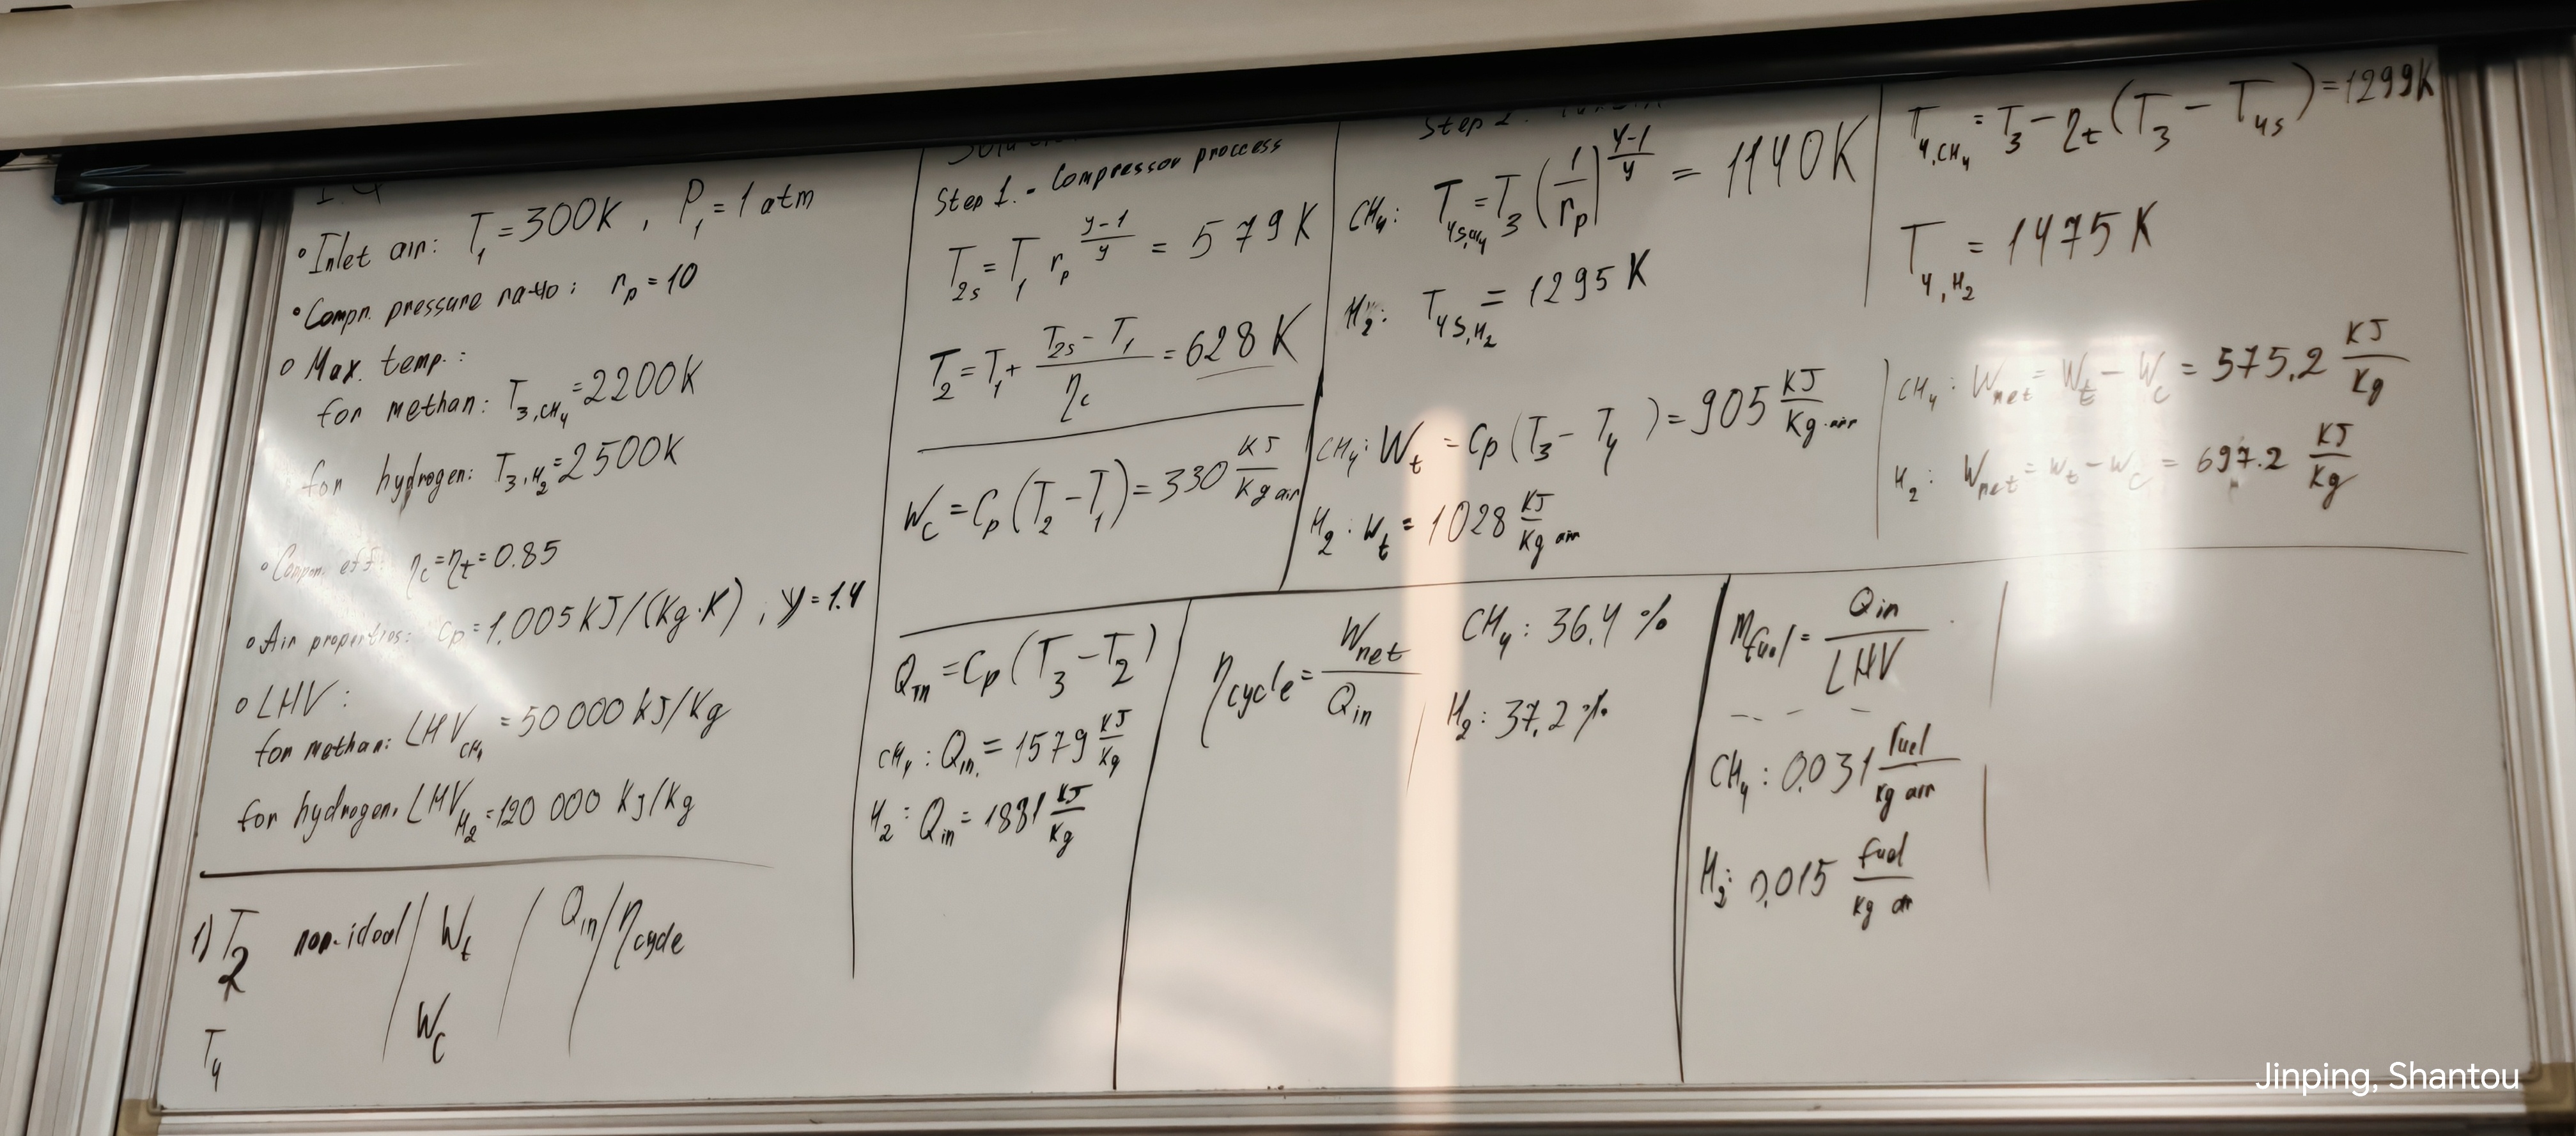 • Inlet air: T₁ = 300K , P₁ = 1 atm
• Compr. pressure ratio: rp = 10
• Max. temp.:
for methan: T₃,CH₄ = 2200K
for hydrogen: T₃,H₂ = 2500K
• Compon. eff. ηc = ηt = 0.85
• Air properties: Cp = 1.005 KJ/(Kg·K) , γ = 1.4
• LHV:
for methan: LHV CH₄ = 50 000 KJ/Kg
for hydrogen. LHV H₂ = 120 000 KJ/Kg
1) T₂ non-ideal / Wt / Qin / ηcycle
T₄ Wc
Step 1. - Compressor proccess
T₂s = T₁ rp^((γ-1)/γ) = 579 K
T₂ = T₁ + (T₂s - T₁)/ηc = 628 K
Wc = Cp (T₂ - T₁) = 330 KJ/Kg air
Step 2.
CH₄: T₄s,CH₄ = T₃ (1/rp)^((γ-1)/γ) = 1140K
H₂: T₄s,H₂ = 1295 K
CH₄: Wt = Cp (T₃ - T₄) = 905 KJ/Kg air
H₂: Wt = 1028 KJ/Kg air
T₄,CH₄ = T₃ - ηt (T₃ - T₄s) = 1299K
T₄,H₂ = 1475 K
CH₄: Wnet = Wt - Wc = 575,2 KJ/Kg
H₂: Wnet = Wt - Wc = 697.2 KJ/Kg
Qin = Cp (T₃ - T₂)
CH₄: Qin. = 1579 KJ/Kg
H₂: Qin = 1881 KJ/Kg
ηcycle = Wnet/Qin
CH₄: 36,4 %
H₂: 37,2 %
mfuel = Qin/LHV
CH₄: 0.031 fuel/kg air
H₂: 0,015 fuel/kg air
Jinping, Shantou